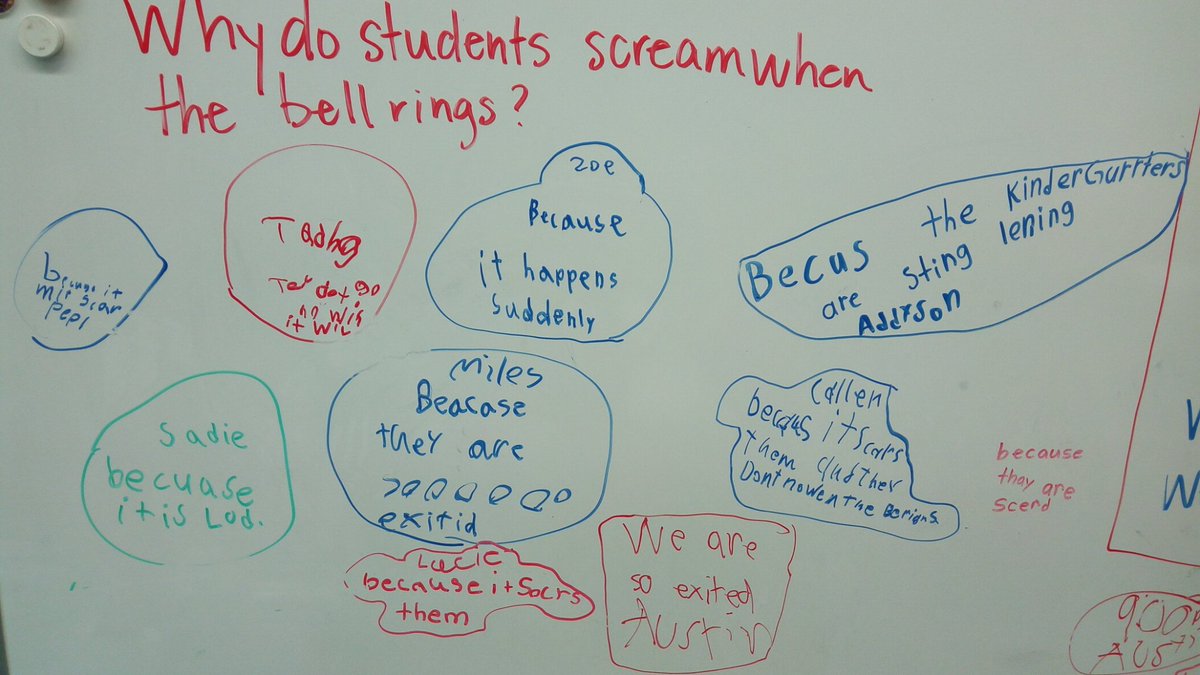 Why do students scream when
the bell rings?
because it
mit scar
pepl
Tadhg
it wil
zoe
Because
it happens
suddenly
Becus the KinderGurtters
are sting lening
Addison
Sadie
becuase
it is Lod.
Miles
Beacase
they are
exitid
Callen
becaus it scars
them and ther
Dont now en the
because
thay are
scerd
Lucie
because it Scars
them
We are
so exited
Austin